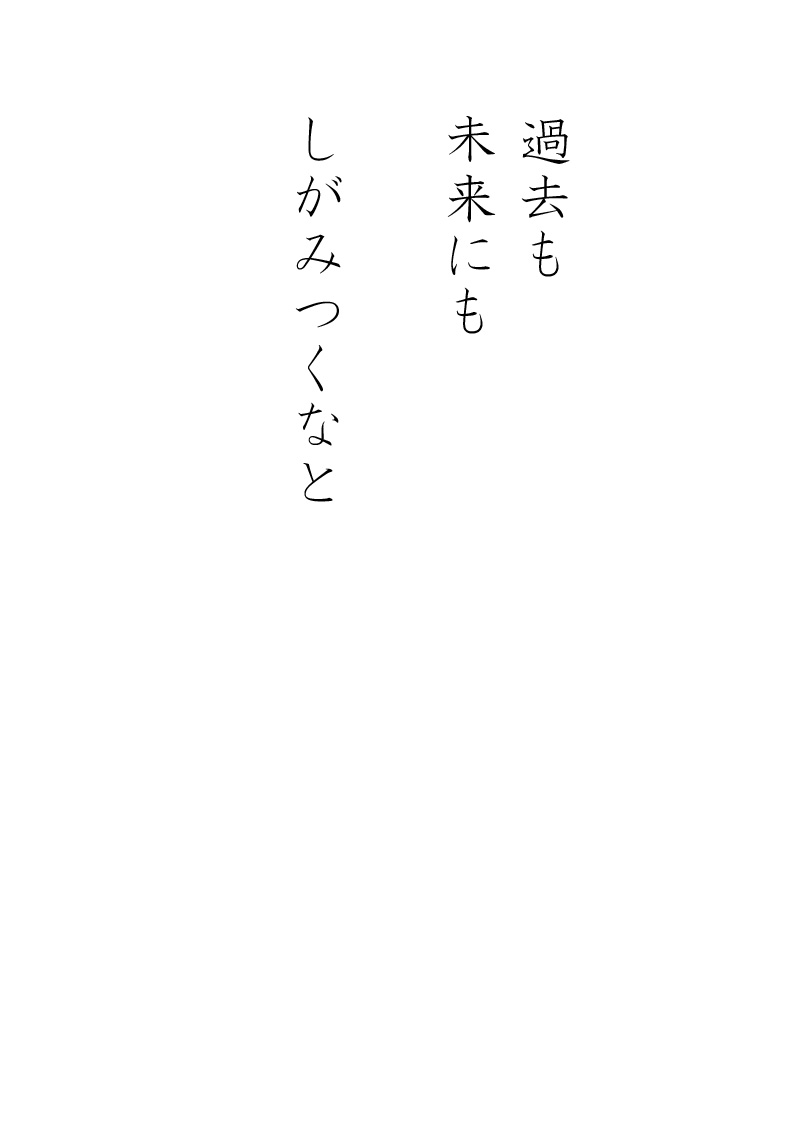 過去も
未来にも
しがみつくなと